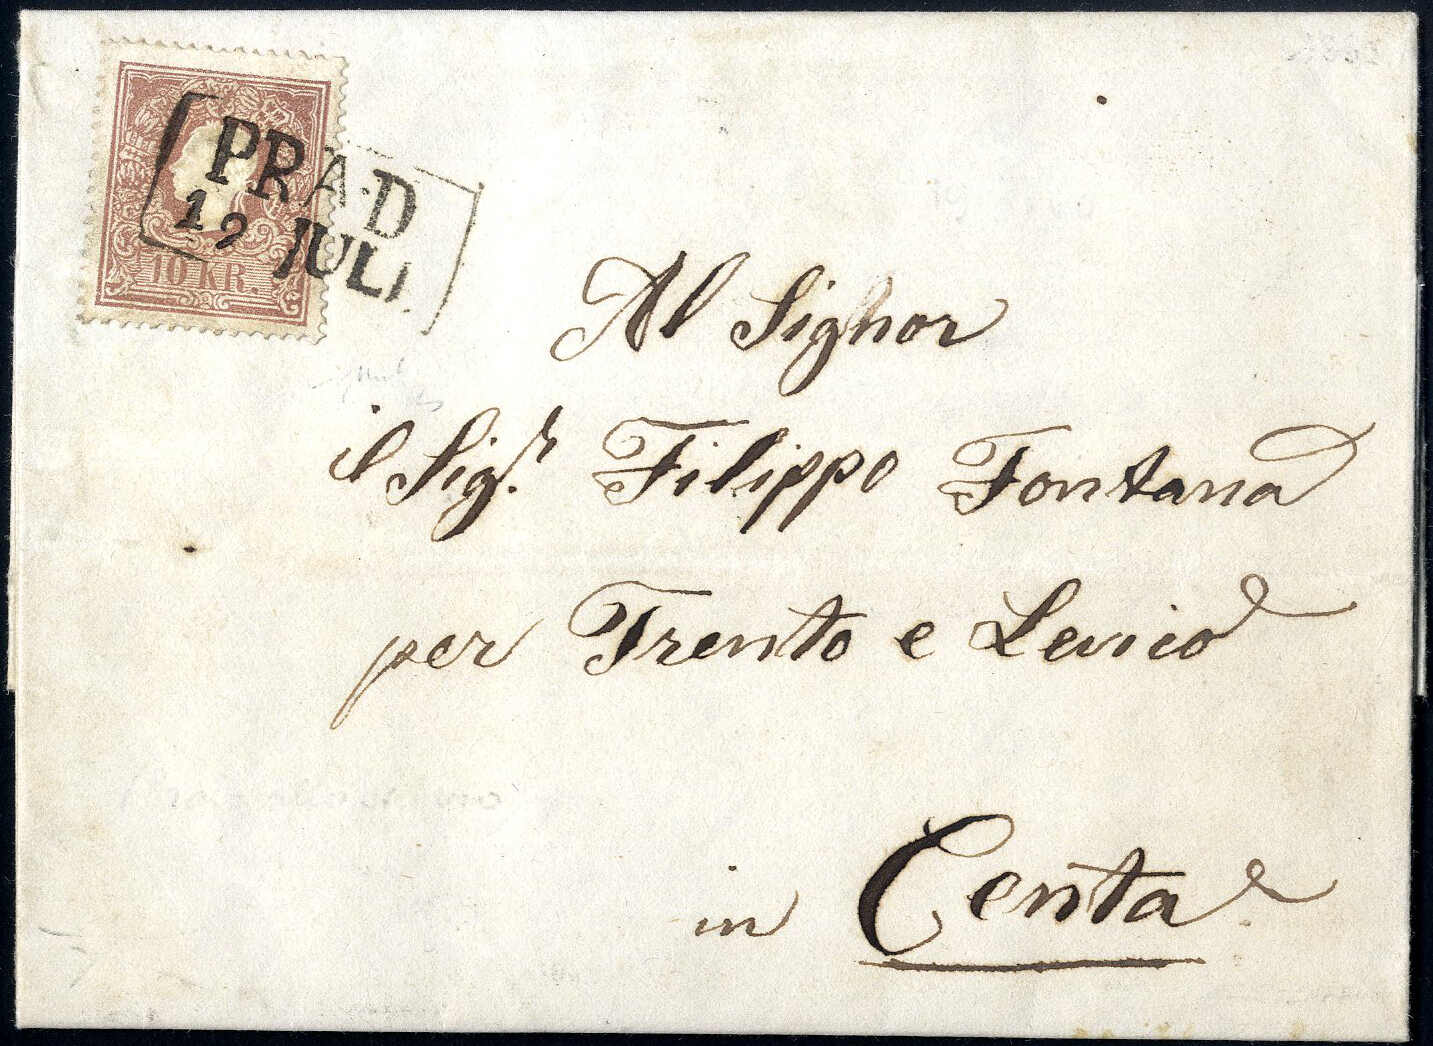 PRA·D
19 JULI
10 KR.
Al Sighor
il Sig.r Filippo Fontana
per Trento e Levico
in Centa